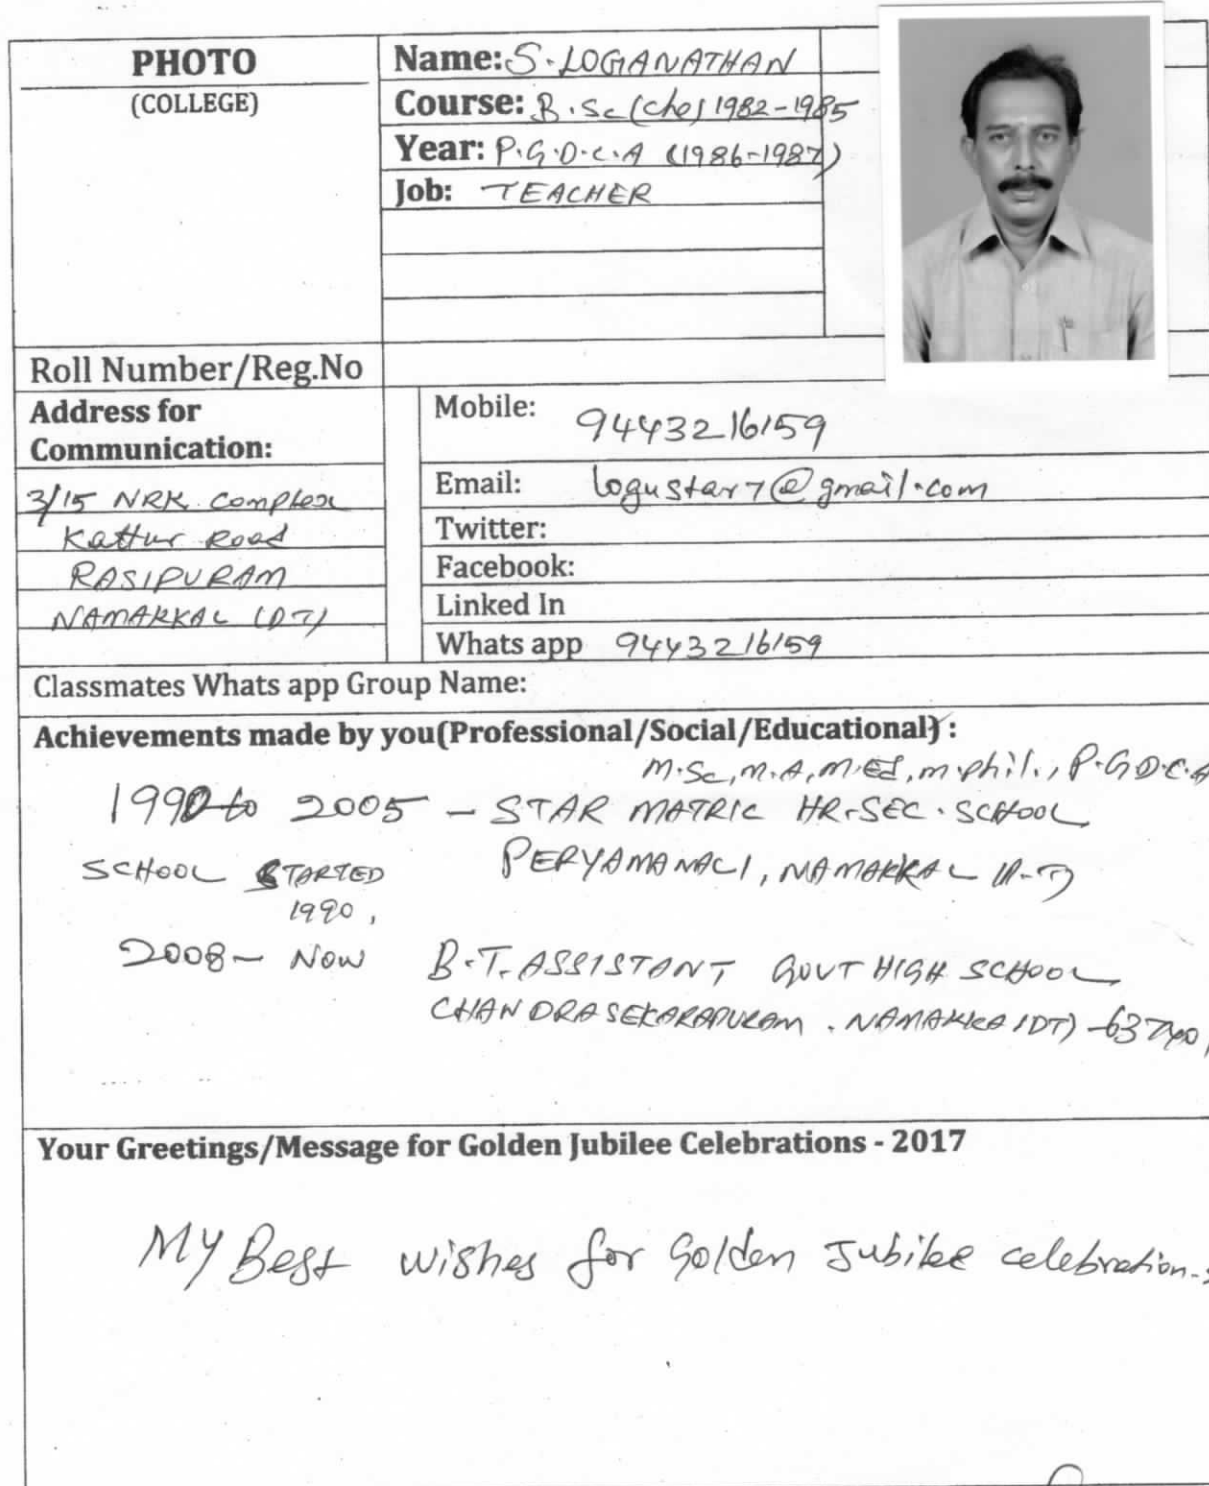 PHOTO
(COLLEGE)
Name: S. LOGANATHAN
Course: B.Sc (che) 1982-1985
Year: P.G.D.C.A (1986-1987)
Job: TEACHER
Roll Number/Reg.No
Address for
Communication:
3/15 NRK. Complex
Kattur Road
RASIPURAM
NAMAKKAL (DT)
Mobile: 9443216159
Email: logustar7@gmail.com
Twitter:
Facebook:
Linked In
Whats app 9443216159
Classmates Whats app Group Name:
Achievements made by you(Professional/Social/Educational) :
M.Sc, M.A, M.Ed, M.phil., P.G.D.C.A
1990 to 2005 - STAR MATRIC HR.SEC. SCHOOL
SCHOOL STARTED PERYAMANALI, NAMAKKAL
1990,
2008 - NOW B.T. ASSISTANT GOVT HIGH SCHOOL
CHANDRASEKARAPURAM. NAMAKKA (DT) -
Your Greetings/Message for Golden Jubilee Celebrations - 2017
My Best wishes for Golden Jubilee celebration